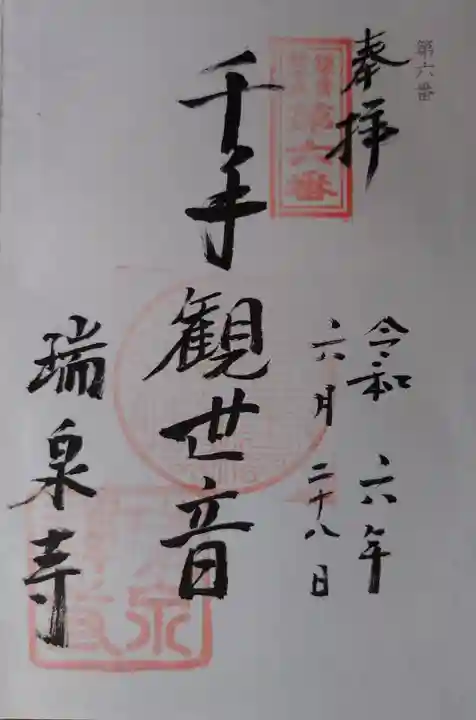 第六番
奉拝
第六番
令和 六年
六月 二十八日
千手観世音
瑞泉寺